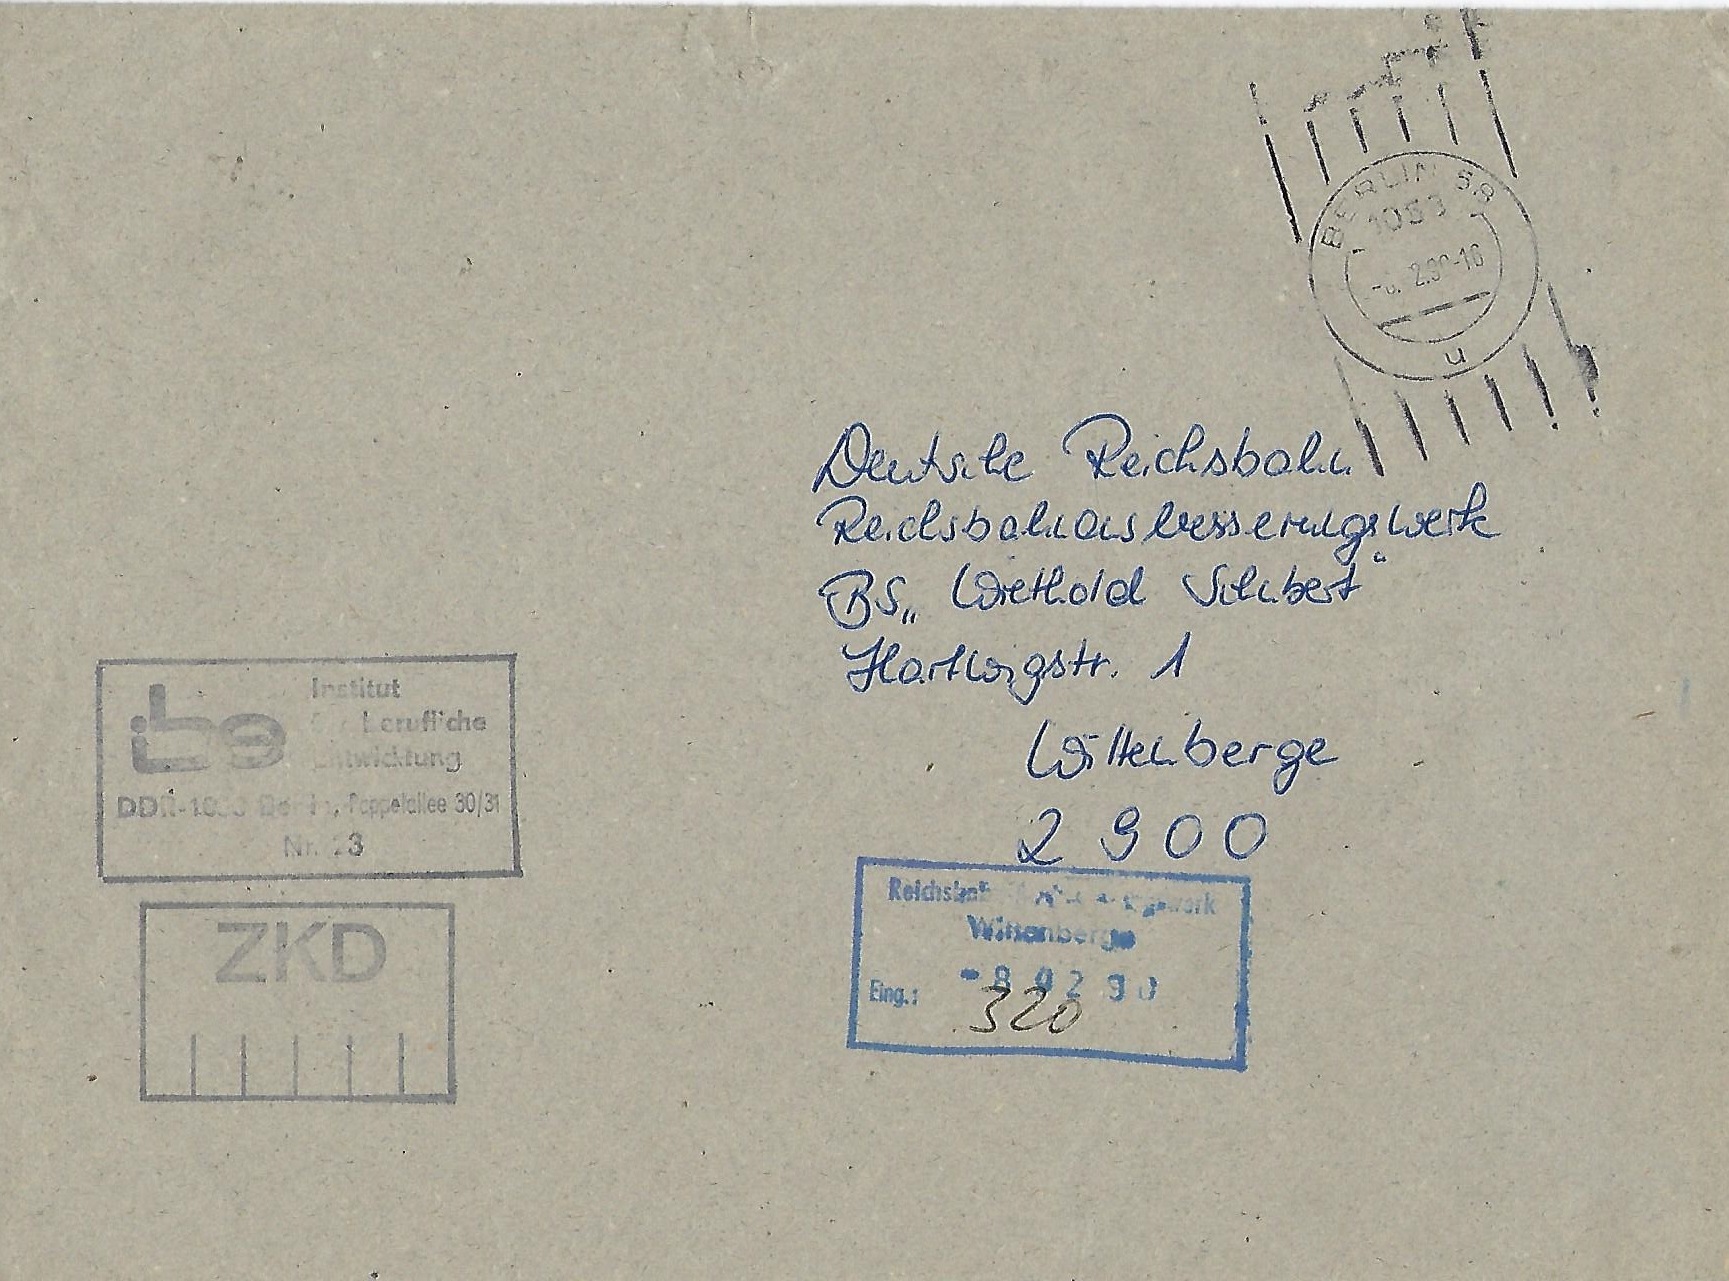 BERLIN 58
1058
-6. 2.90-16
u
Deutsche Reichsbahn
Reichsbahnausbesserungswerk
BS „Wiethold Schubert"
Hartwigstr. 1
Wittenberge
2900
ibe Institut
für berufliche
Entwicklung
DDR- Berlin, Pappelallee 30/31
Nr.
ZKD
Reichsbahnausbesserungswerk
Wittenberge
Eing.: -8 02 90
320